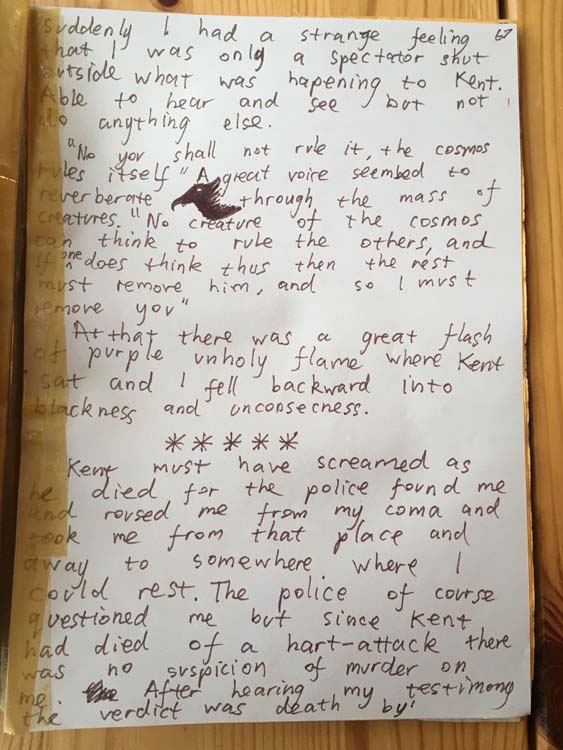 suddenly I had a strange feeling 67
that I was only a spectator shut
outside what was hapening to Kent.
Able to hear and see but not
do anything else.
"No you shall not rule it, the cosmos
rules itself" A great voire seembed to
reverberate through the mass of
creatures. "No creature of the cosmos
can think to rule the others, and
if one does think thus then the rest
must remove him, and so I must
remove you"
At that there was a great flash
of purple unholy flame where Kent
sat and I fell backward into
blackness and unconsecness.
*****
Kent must have screamed as
he died for the police found me
and roused me from my coma and
took me from that place and
away to somewhere where I
could rest. The police of course
questioned me but since Kent
had died of a hart-attack there
was no suspicion of murder on
me. After hearing my testimony
the verdict was death by